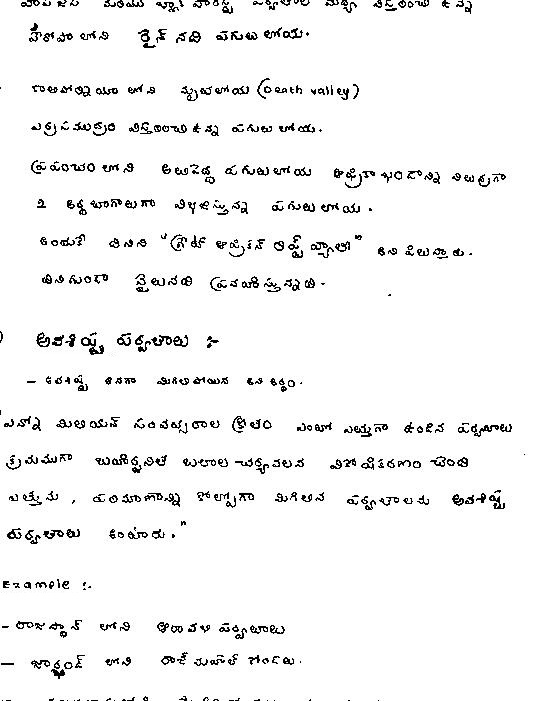 వాసజెస్ మరియు బ్లాక్ ఫారెస్ట్ పర్వతాల మధ్య విస్తరించి ఉన్న
హీరోపా లోని రైన్ నది పగులులోయ.
కాలిఫోర్నియా లోని మృతలోయ (Death valley)
ఎర్రసముద్రం విస్తరించి ఉన్న పగులులోయ.
ప్రపంచం లోని అతిపెద్ద పగులులోయ ఆఫ్రికా ఖండాన్ని నిలువుగా
2 అర్ధభాగాలుగా విభజిస్తున్న పగులులోయ.
అందుకే దీనిని "గ్రేట్ ఆఫ్రికన్ రిఫ్ట్ వ్యాలీ" అని పిలుస్తారు.
దీనిగుండా నైలునది ప్రవహిస్తున్నది.
అవశిష్ట పర్వతాలు :-
- అవశిష్ట అనగా మిగిలిపోయిన అని అర్థం.
"ఎన్నో మిలియన్ సంవత్సరాల క్రితం ఎంతో ఎత్తుగా ఉండిన పర్వతాలు
క్రమముగా బహిర్జనిత బలాల చర్యవలన వికోషీకరణం చెంది
ఎత్తును, పరిమాణాన్ని కోల్పోగా మిగిలిన పర్వతాలను అవశిష్ట
పర్వతాలు అంటారు."
Example :-
- రాజస్థాన్ లోని ఆరావళి పర్వతాలు
- జార్ఖండ్ లోని రాజ్ మహల్ కొండలు.